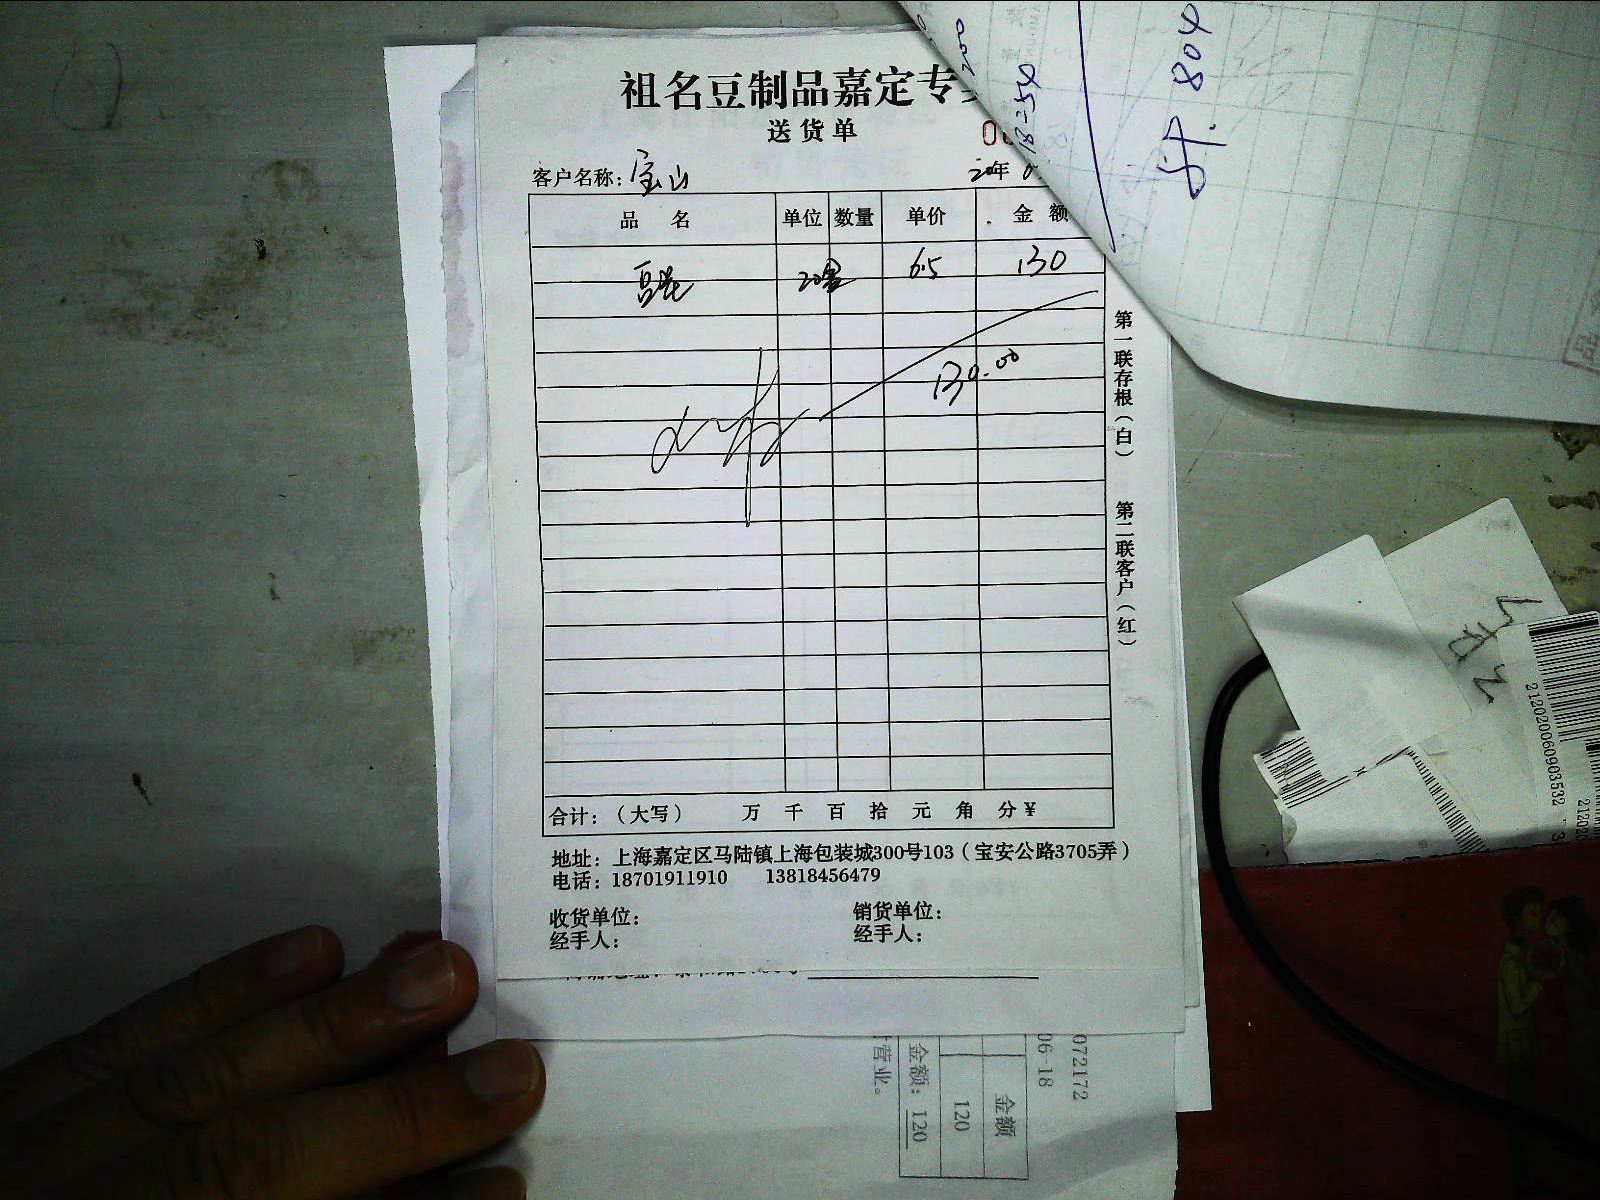 祖名豆制品嘉定专
送货单
客户名称：宝山
20年
品 名 单位 数量 单价 金 额
20 6.5 130
130.00
合计：（大写） 万 千 百 拾 元 角 分¥
地址：上海嘉定区马陆镇上海包装城300号103（宝安公路3705弄）
电话：18701911910 13818456479
收货单位： 销货单位：
经手人： 经手人：
第一联存根（白） 第二联客户（红）
18=54
804
212020060903532
072172
06-18
金额
120
金额：120
营业。